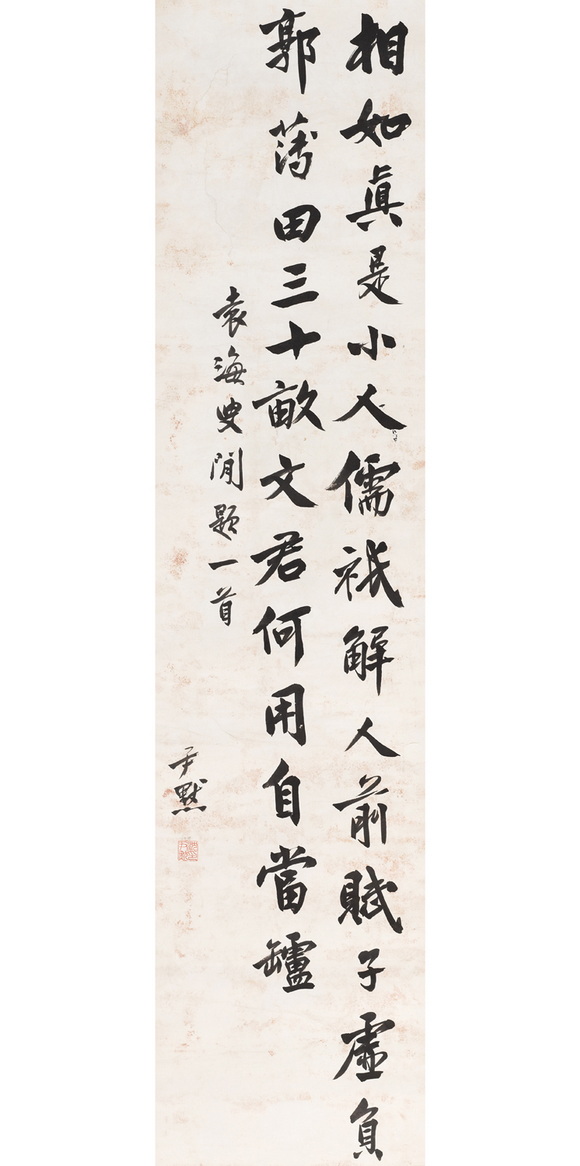 相如真是小人儒祇解人前賦子虛負
郭薄田三十畝文君何用自當罏
袁海叟閒題一首
尹默